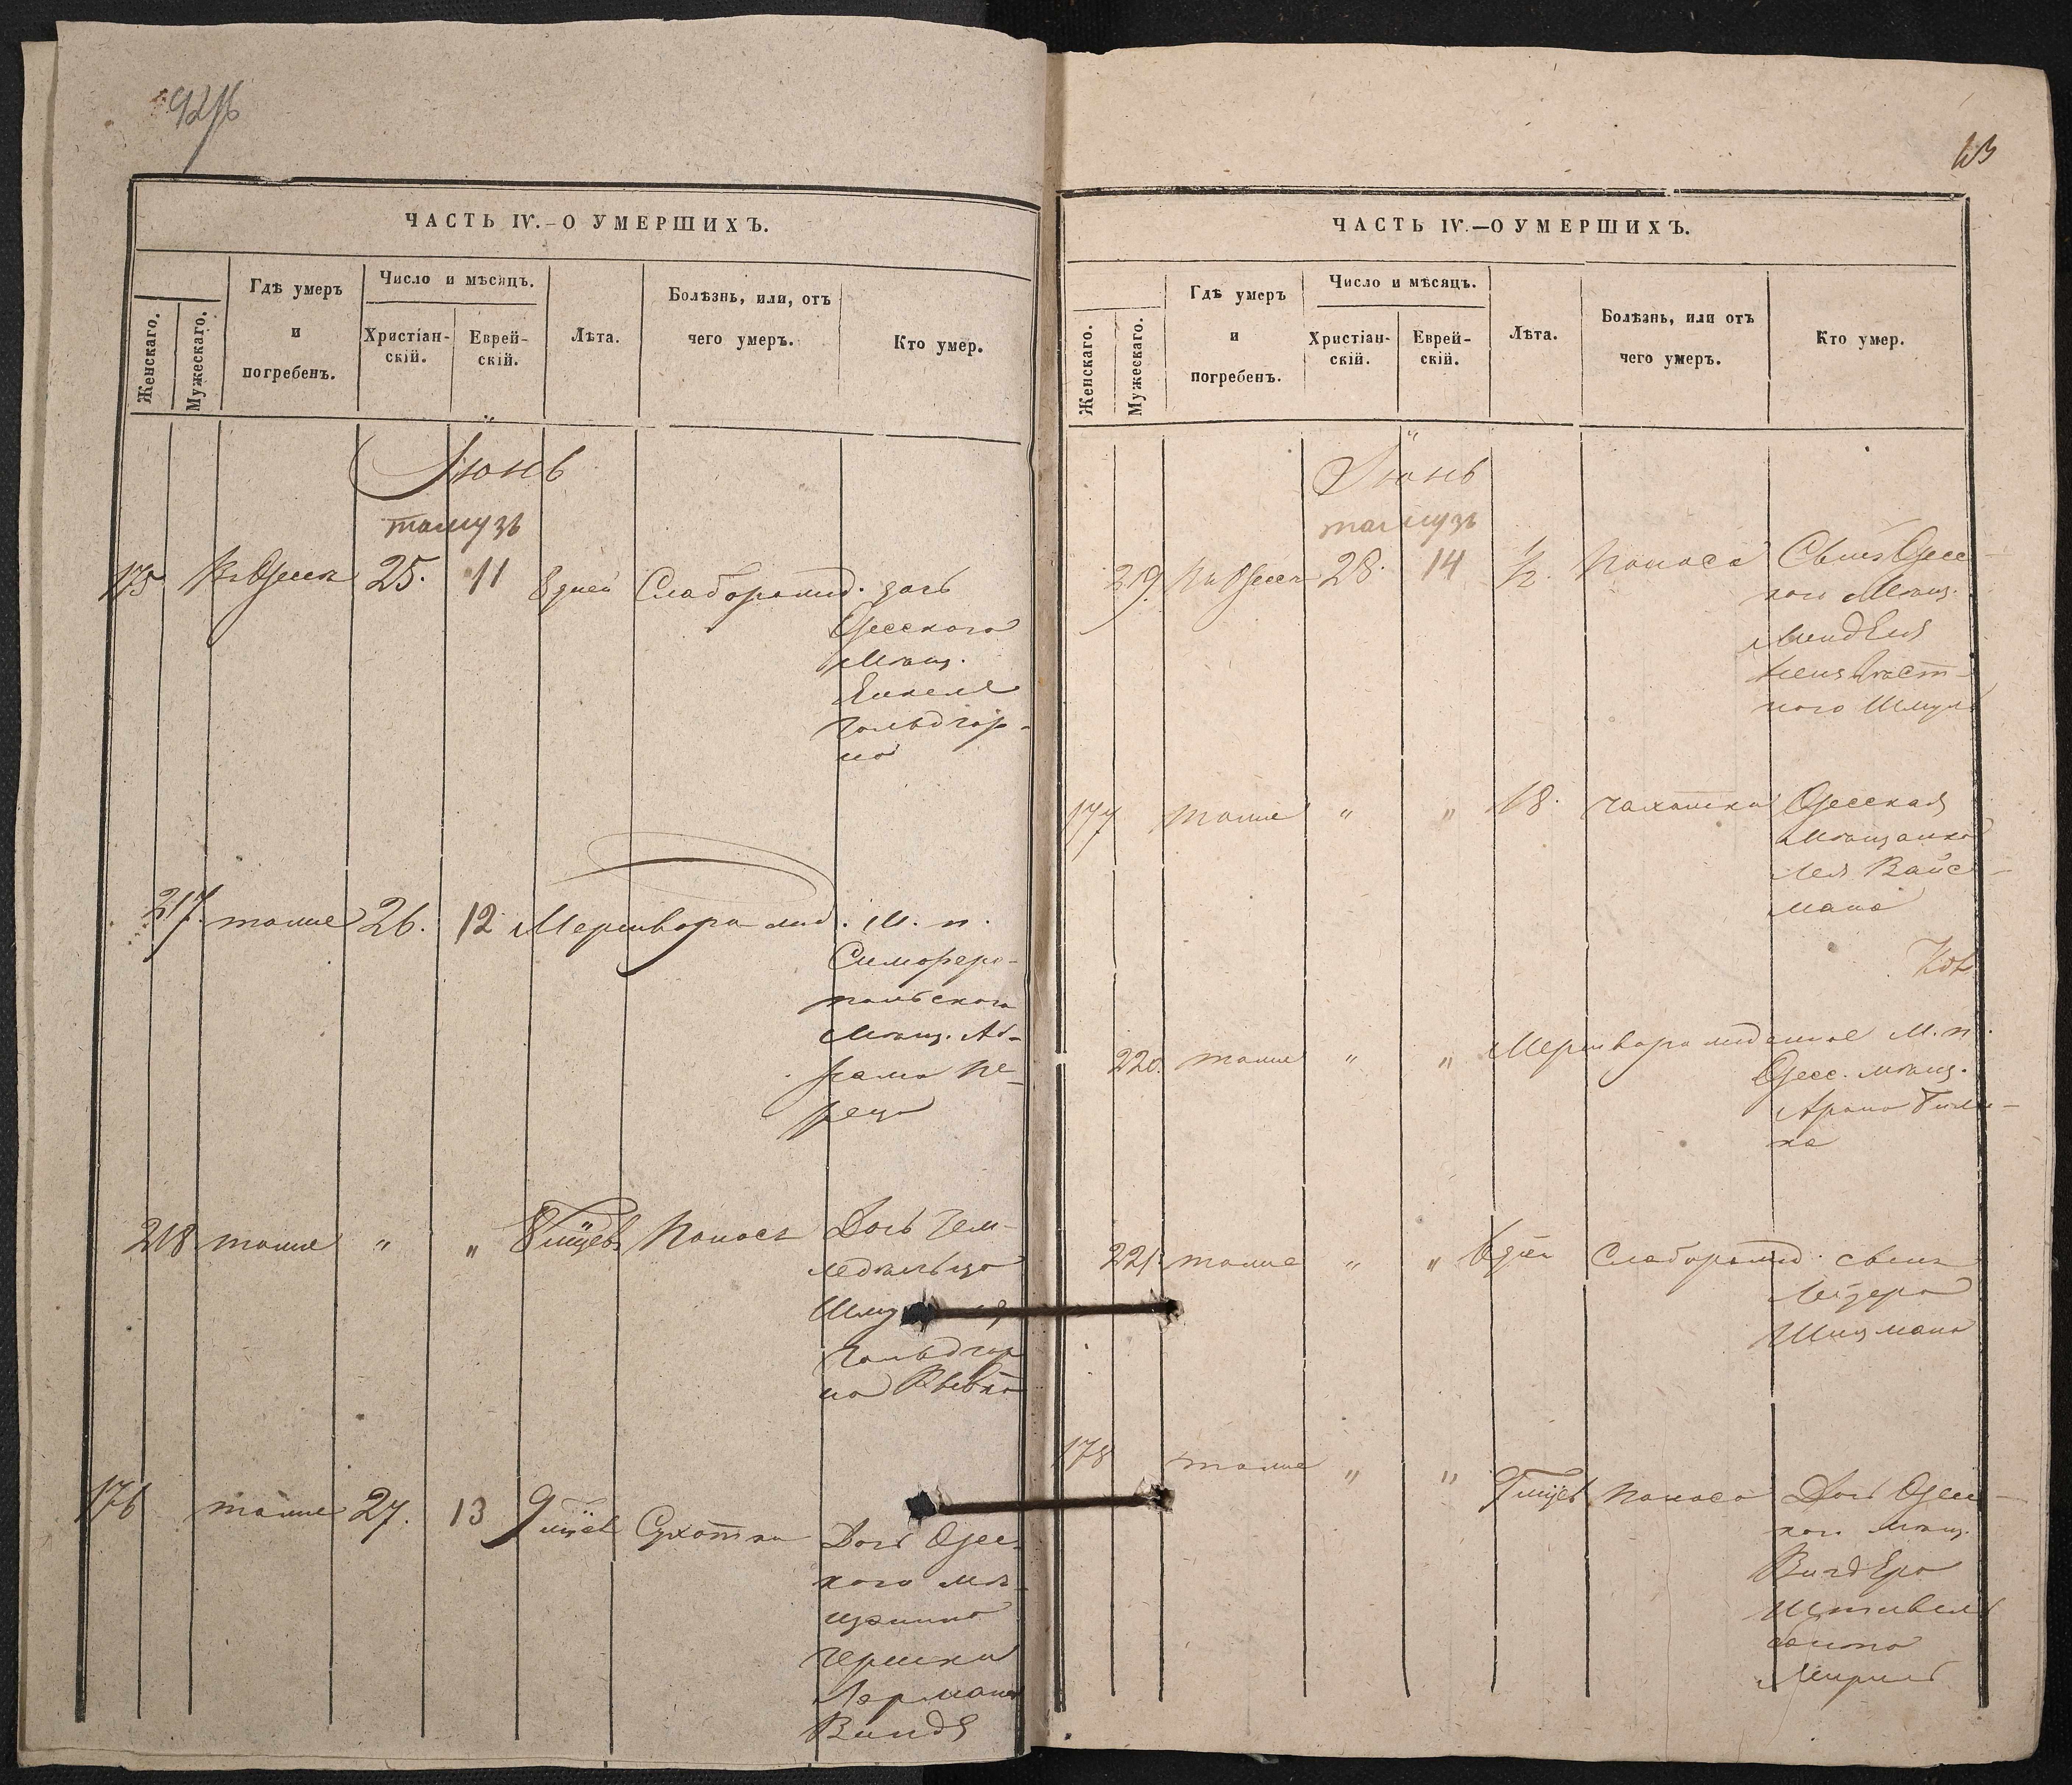 ЧАСТЬ IV.–О УМЕРШИХЪ.
Женскаго.
Мужескаго.
Гдѣ умеръ
и
погребенъ.
Число и мѣсяцъ.
Христіан-
скій.
Еврей-
скій.
Лѣта.
Болѣзнь, или, отъ
чего умеръ.
Кто умер.
Іюнь
тамузъ
175. Въ Одессѣ 25. 11 8 дней Слаборожд. дочь
Одесского
Мѣщ.
Янкеля
Гольдгор-
на
217. тоже 26. 12 Мертворожд. М. п.
Симферо-
польского
Мѣщ. Аб-
рама Пе-
реца
218 тоже " " 8 мцевъ Поносъ Дочь Зем-
ледѣльца
Гольдгор
на
176 тоже 27. 13 9 мцев Сухотка Дочь Одес-
кого мѣ-
щанина
Гершки
Лермана
ЧАСТЬ IV.—О УМЕРШИХЪ.
Женскаго.
Мужескаго.
Гдѣ умеръ
и
погребенъ.
Число и мѣсяцъ.
Христіан-
скій.
Еврей-
скій.
Лѣта.
Болѣзнь, или отъ
чего умеръ.
Кто умер.
Іюнь
тамузъ
219. Въ Одессѣ 28. 14 1/2. Поноса Сынъ Одесс
кого Мѣщ.
Менделя
Неизвѣст-
ного Шмуль
177 тоже " " 18. чахотки Одесская
мѣщанка
Лея Вайс-
мана
220. тоже " " Мертворожденное М. п.
Одесс. мѣщ.
Арона
ка
221. тоже " " 6 дней Слаборожд. сынъ
Лейзера
178 тоже " " 9 мцев Поноса Дочь Одесс-
кого мѣщ.
Вигдера